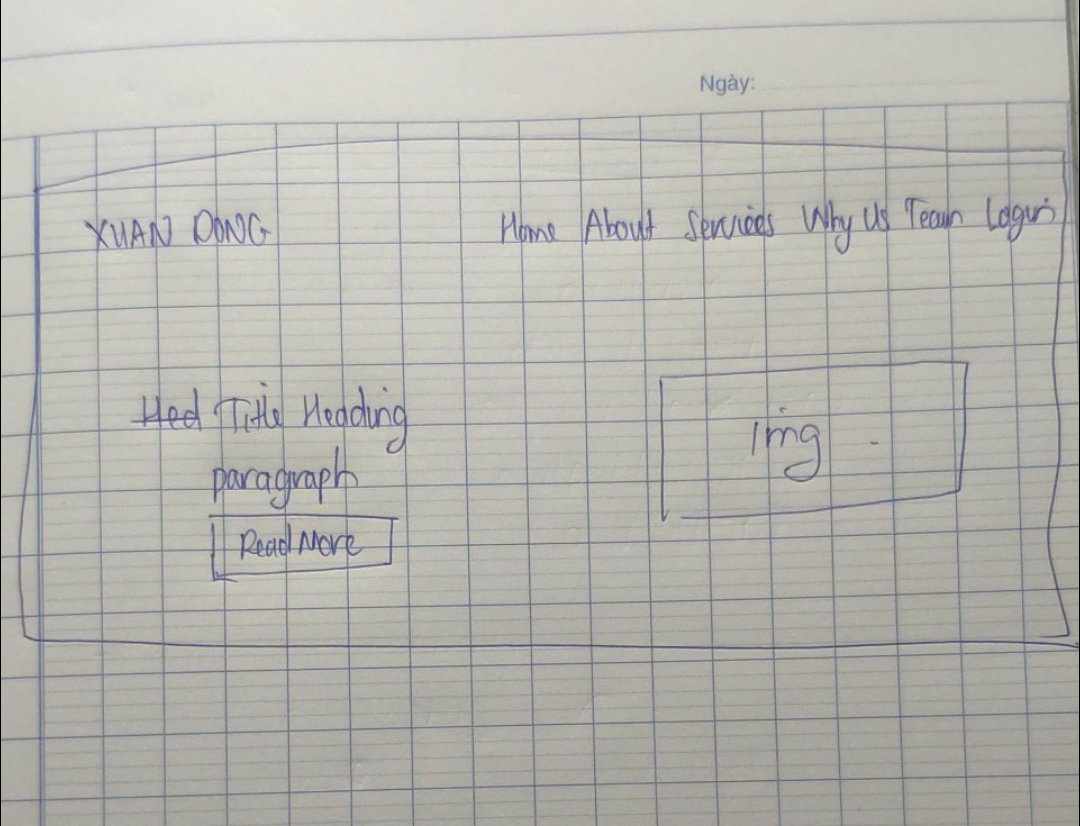 Ngày:
XUAN DONG Home About Services Why Us Team Login
Hed Title Heading
paragraph
Read More
img